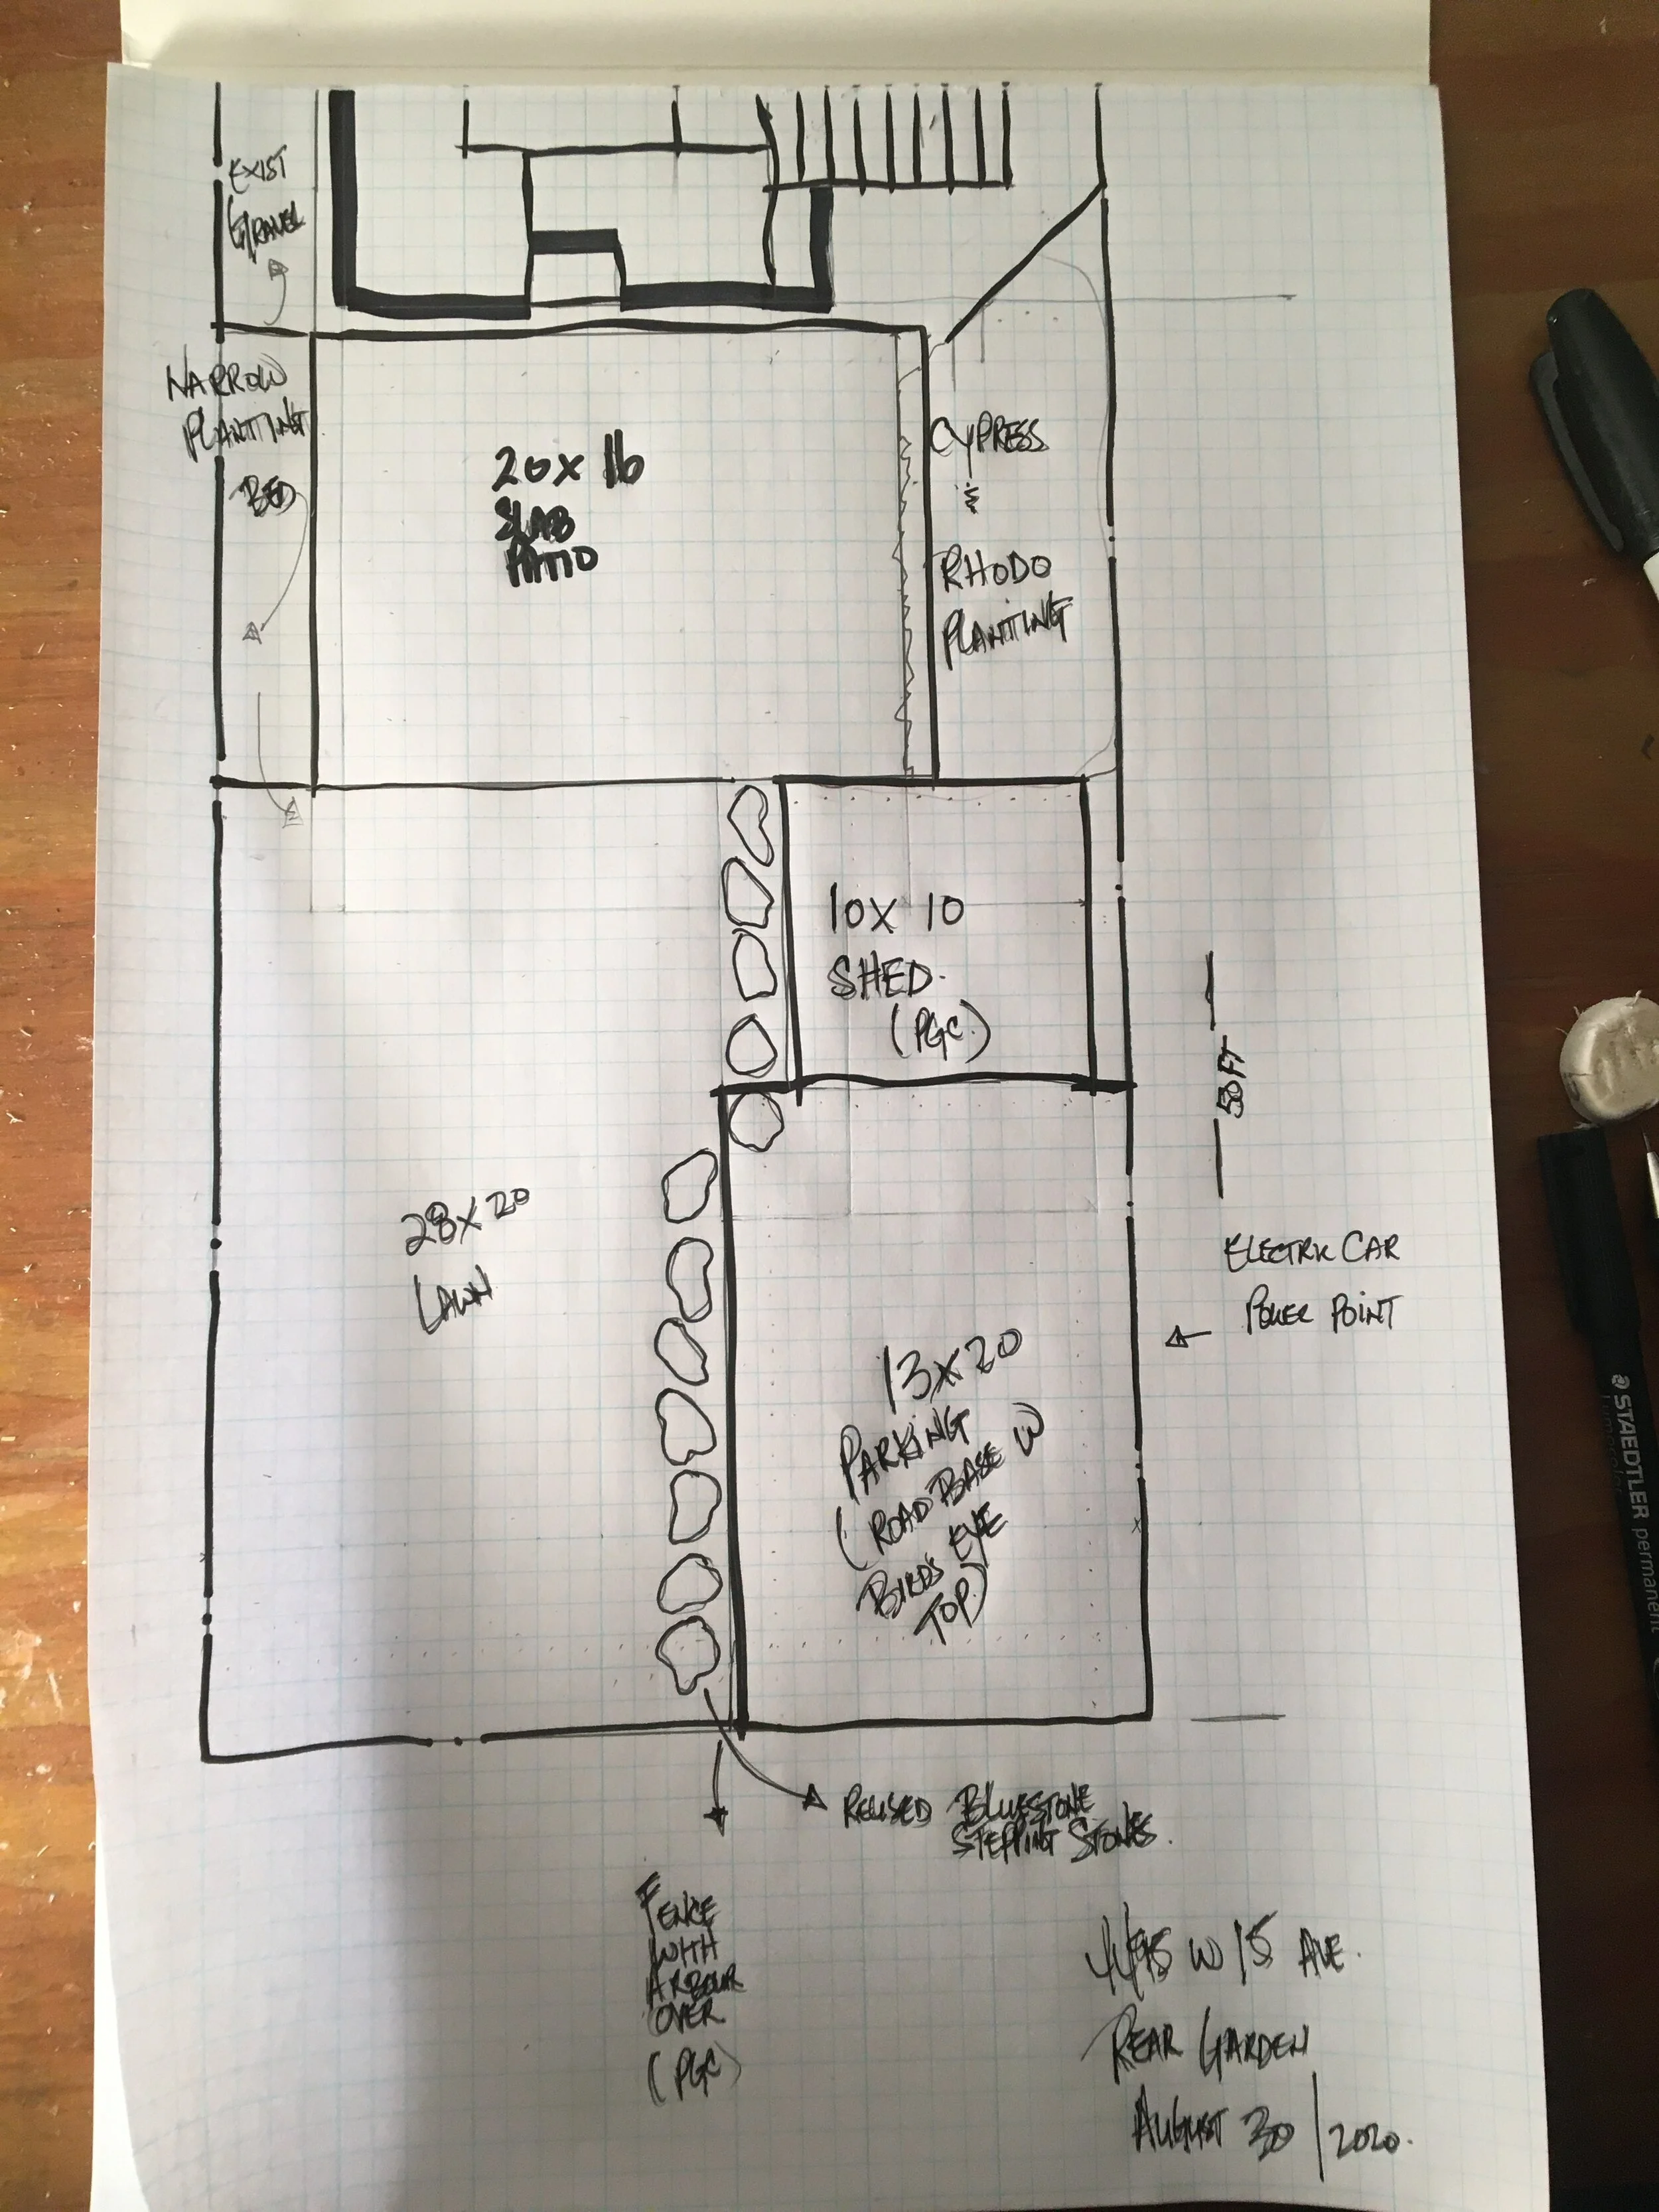 EXIST
GRAVEL
NARROW
PLANTING
BED
20 x 16
SLAB
PATIO
CYPRESS
&
RHODO
PLANTING
10 X 10
SHED.
(PGC.)
50 FT
28 X 20
LAWN
ELECTRIC CAR
POWER POINT
13 X 20
PARKING
(ROAD BASE W
BIRDS EYE
TOP)
STAEDTLER permanent
REUSED BLUESTONE
STEPPING STONES.
FENCE
WITH
ARBOUR
OVER
(PGC)
4495 W 15 AVE.
REAR GARDEN
AUGUST 30 / 2020.